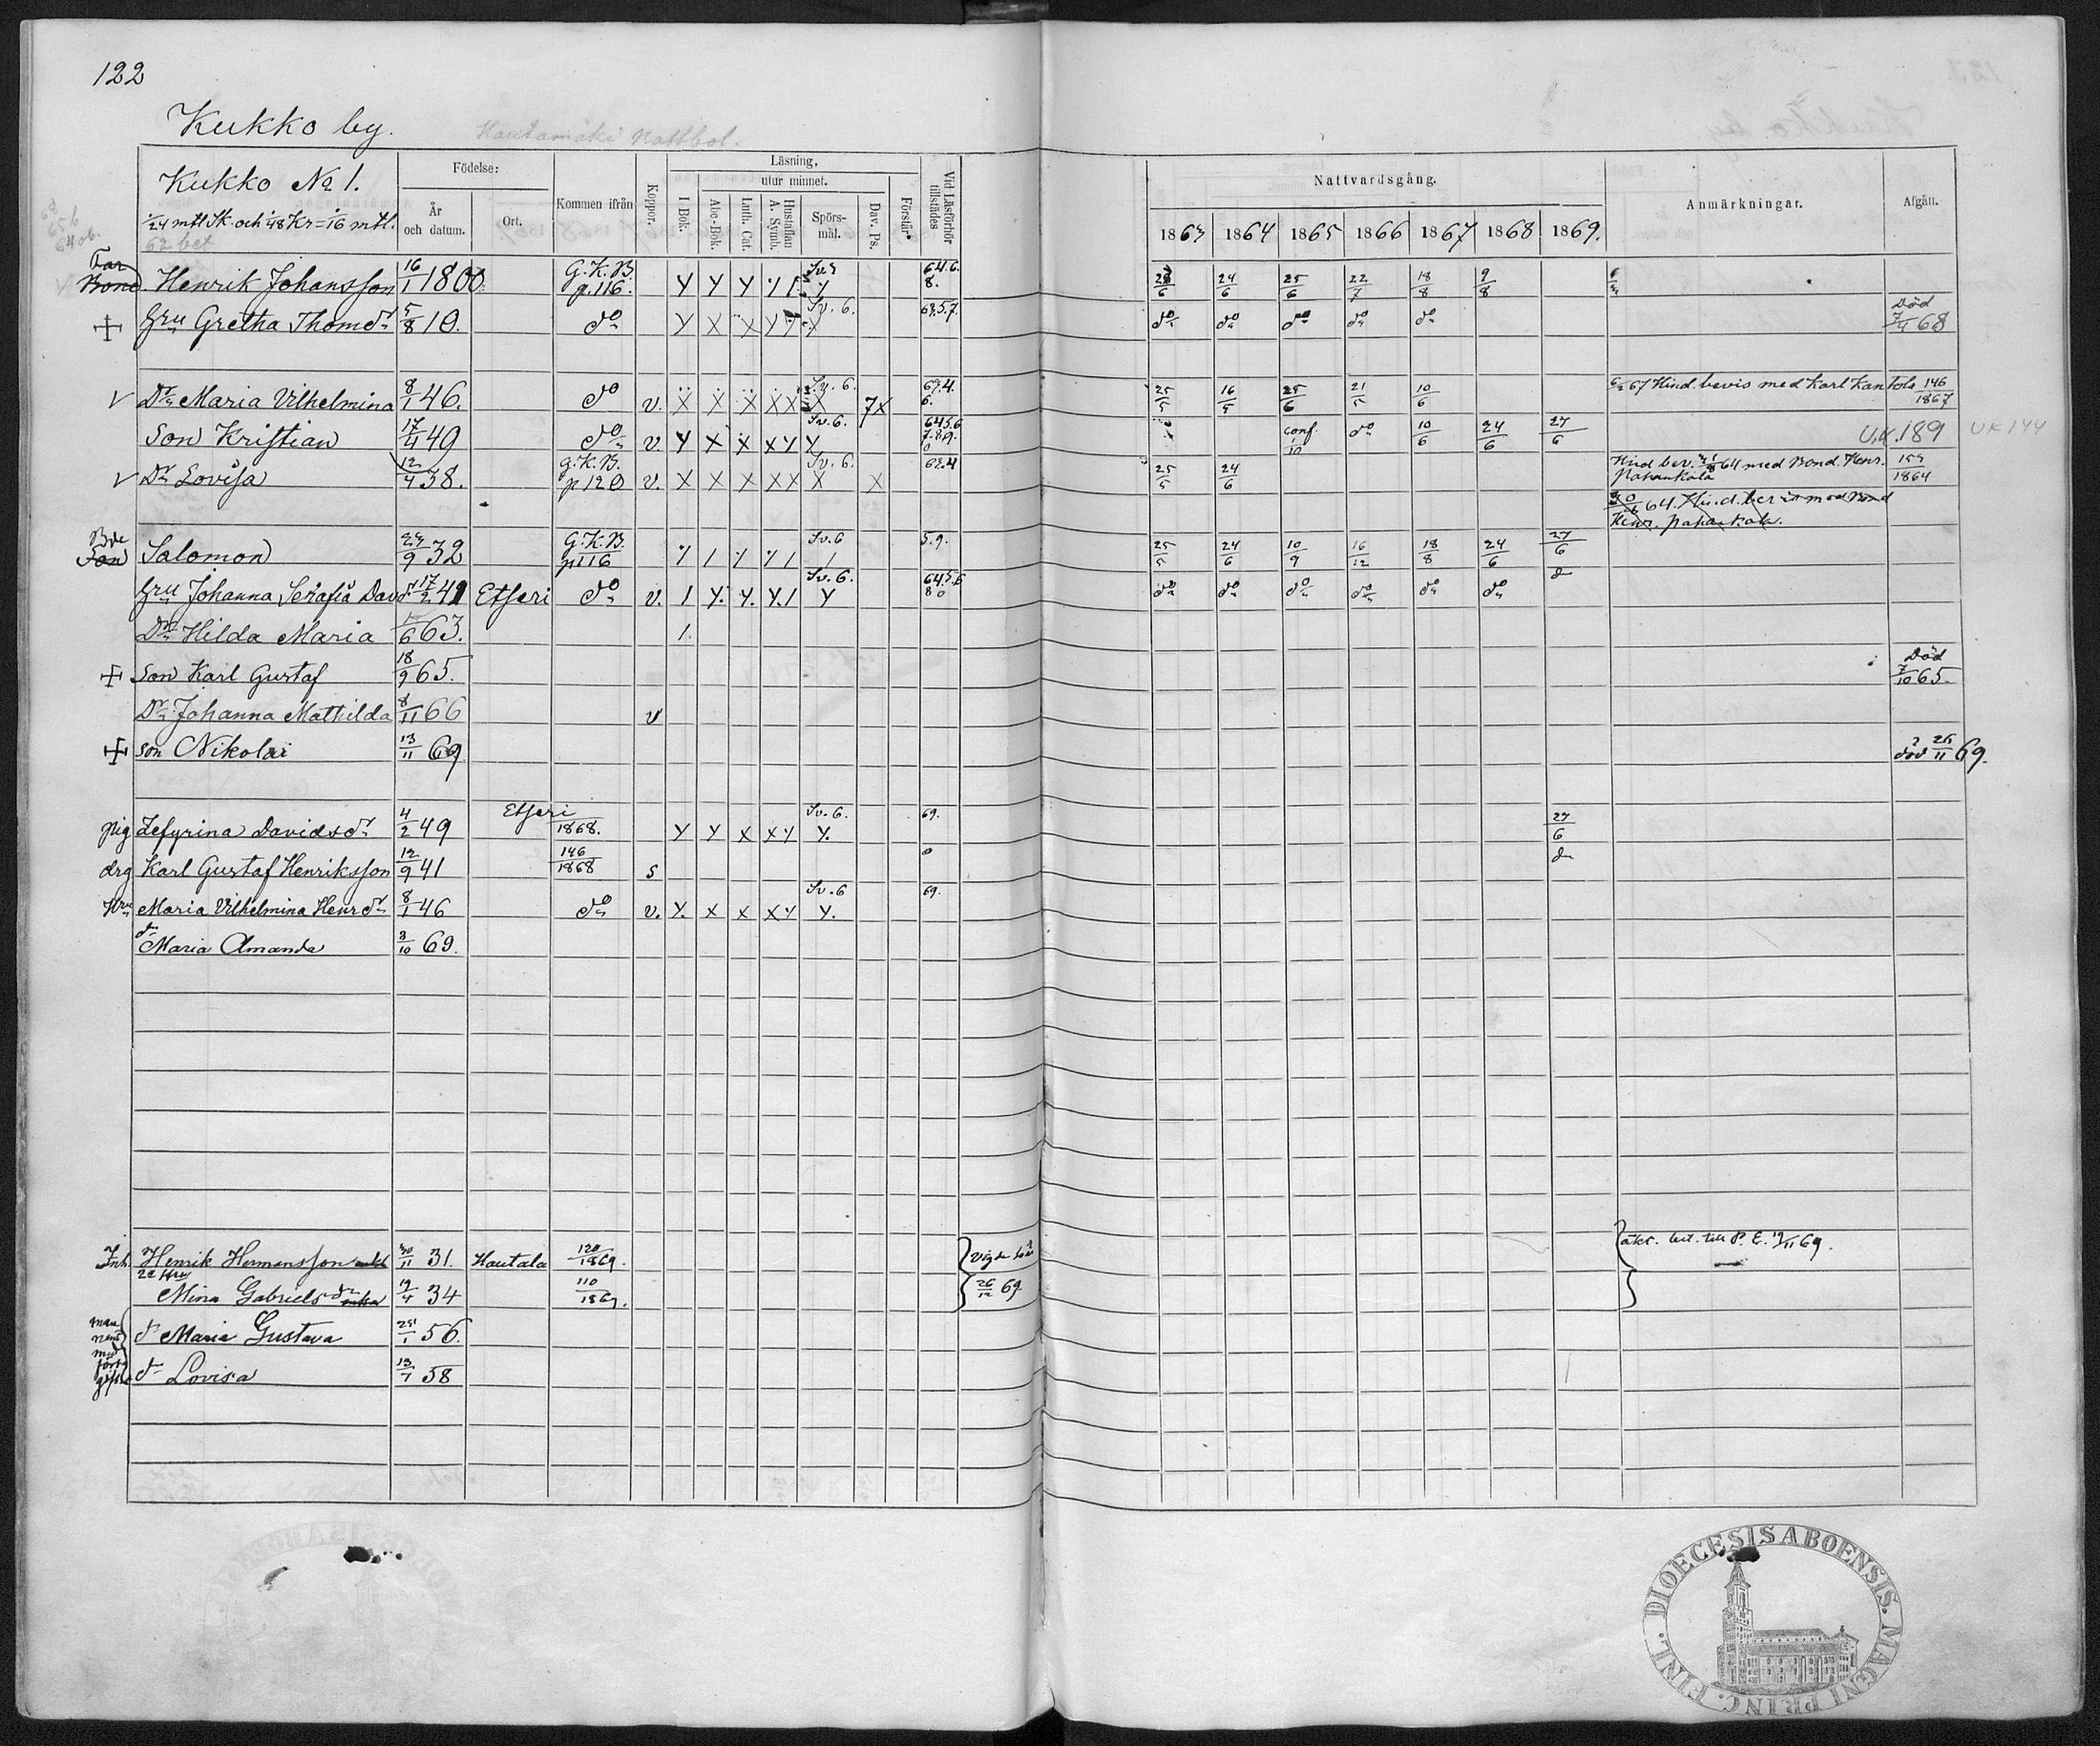 122
Kukko by.
Hautamäki Nattbol.
Kukko No 1.
1/24 mtl Sk. och 1/48 Kr = 1/16 mtl.
62 bet
Födelse:
År och datum.
Ort.
Kommen ifrån
Koppor.
Läsning,
utur minnet.
I Bok.
Abc-Bok.
Luth. Cat.
Hustaflan A. Symb.
Spörs-mål.
Dav. Ps.
Förstår
Vid Läsförhör tillstädes
Nattvardsgång.
1863 1864 1865 1866 1867 1868 1869.
Anmärkningar.
Afgått.
Far Bond. Henrik Johansson 16/1 1800 G.K.B. p.116. 64.6. 8. 24/6 25/6 22/7 18/8 9/8
Hru Gretha Thomdr 5/8 10. do Sv. 6. do do do do do Död 7/4 68
Dr Maria Vilhelmina 8/1 46. do v. Sv. 6. 7x 25/5 16/5 25/6 21/5 10/6 67 Hind bevis med Karl Kantola 146/1867
Son Kristian 17/4 49 do v. Sv. 6. conf. 1/10 do 10/6 24/6 27/6 U.K. 189 UK 144
Dr Lovisa 12/4 38. G.K.B. p 120 v. Sv. 6. 25/5 24/6 Hind bev. 64 med Bond. Henr. Pahankala 1864
64. Hind. bevis med Bond Henr. Pahankala.
Bde Son Salomon 9 32 G.K.B. p116 Sv. 6 5.9. 25/5 24/6 10/9 16/12 18/8 24/6 27/6
Hru Johanna Serafia Davdr 17/2 41 Etseri do v. Sv. 6. 64.5.6 8 0 do do do do do do d
Dr Hilda Maria 6 63.
Son Karl Gustaf 18/9 65. Död 7/10 65.
Dr Johanna Mathilda 8/11 66 v
son Nikolai 13/11 69 död 25/11 69.
pig Zefyrina Davidsdr 4/2 49 Etseri 1868. Sv. 6. 69. 27/6
drg Karl Gustaf Henriksson 12/9 41 146/1868 s 0 do
Hru Maria Vilhelmina Henrdr 8/1 46 do v. Sv. 6 69.
dr Maria Amanda 3/10 69.
Inh. Henrik Hermansson enkl 30/11 31. Hautala 120/1869. Vigde 26/12 69 äkt. bet. till P. E. 69.
2e Hru Mina Gabrielsdr enka 19/4 34 110/1869.
dr Maria Gustava 25/1 56.
dr Lovisa 13/7 58
mannens med förra giftet
DIOECESIS ABOENSIS. MAGNI PRINC. FINL.